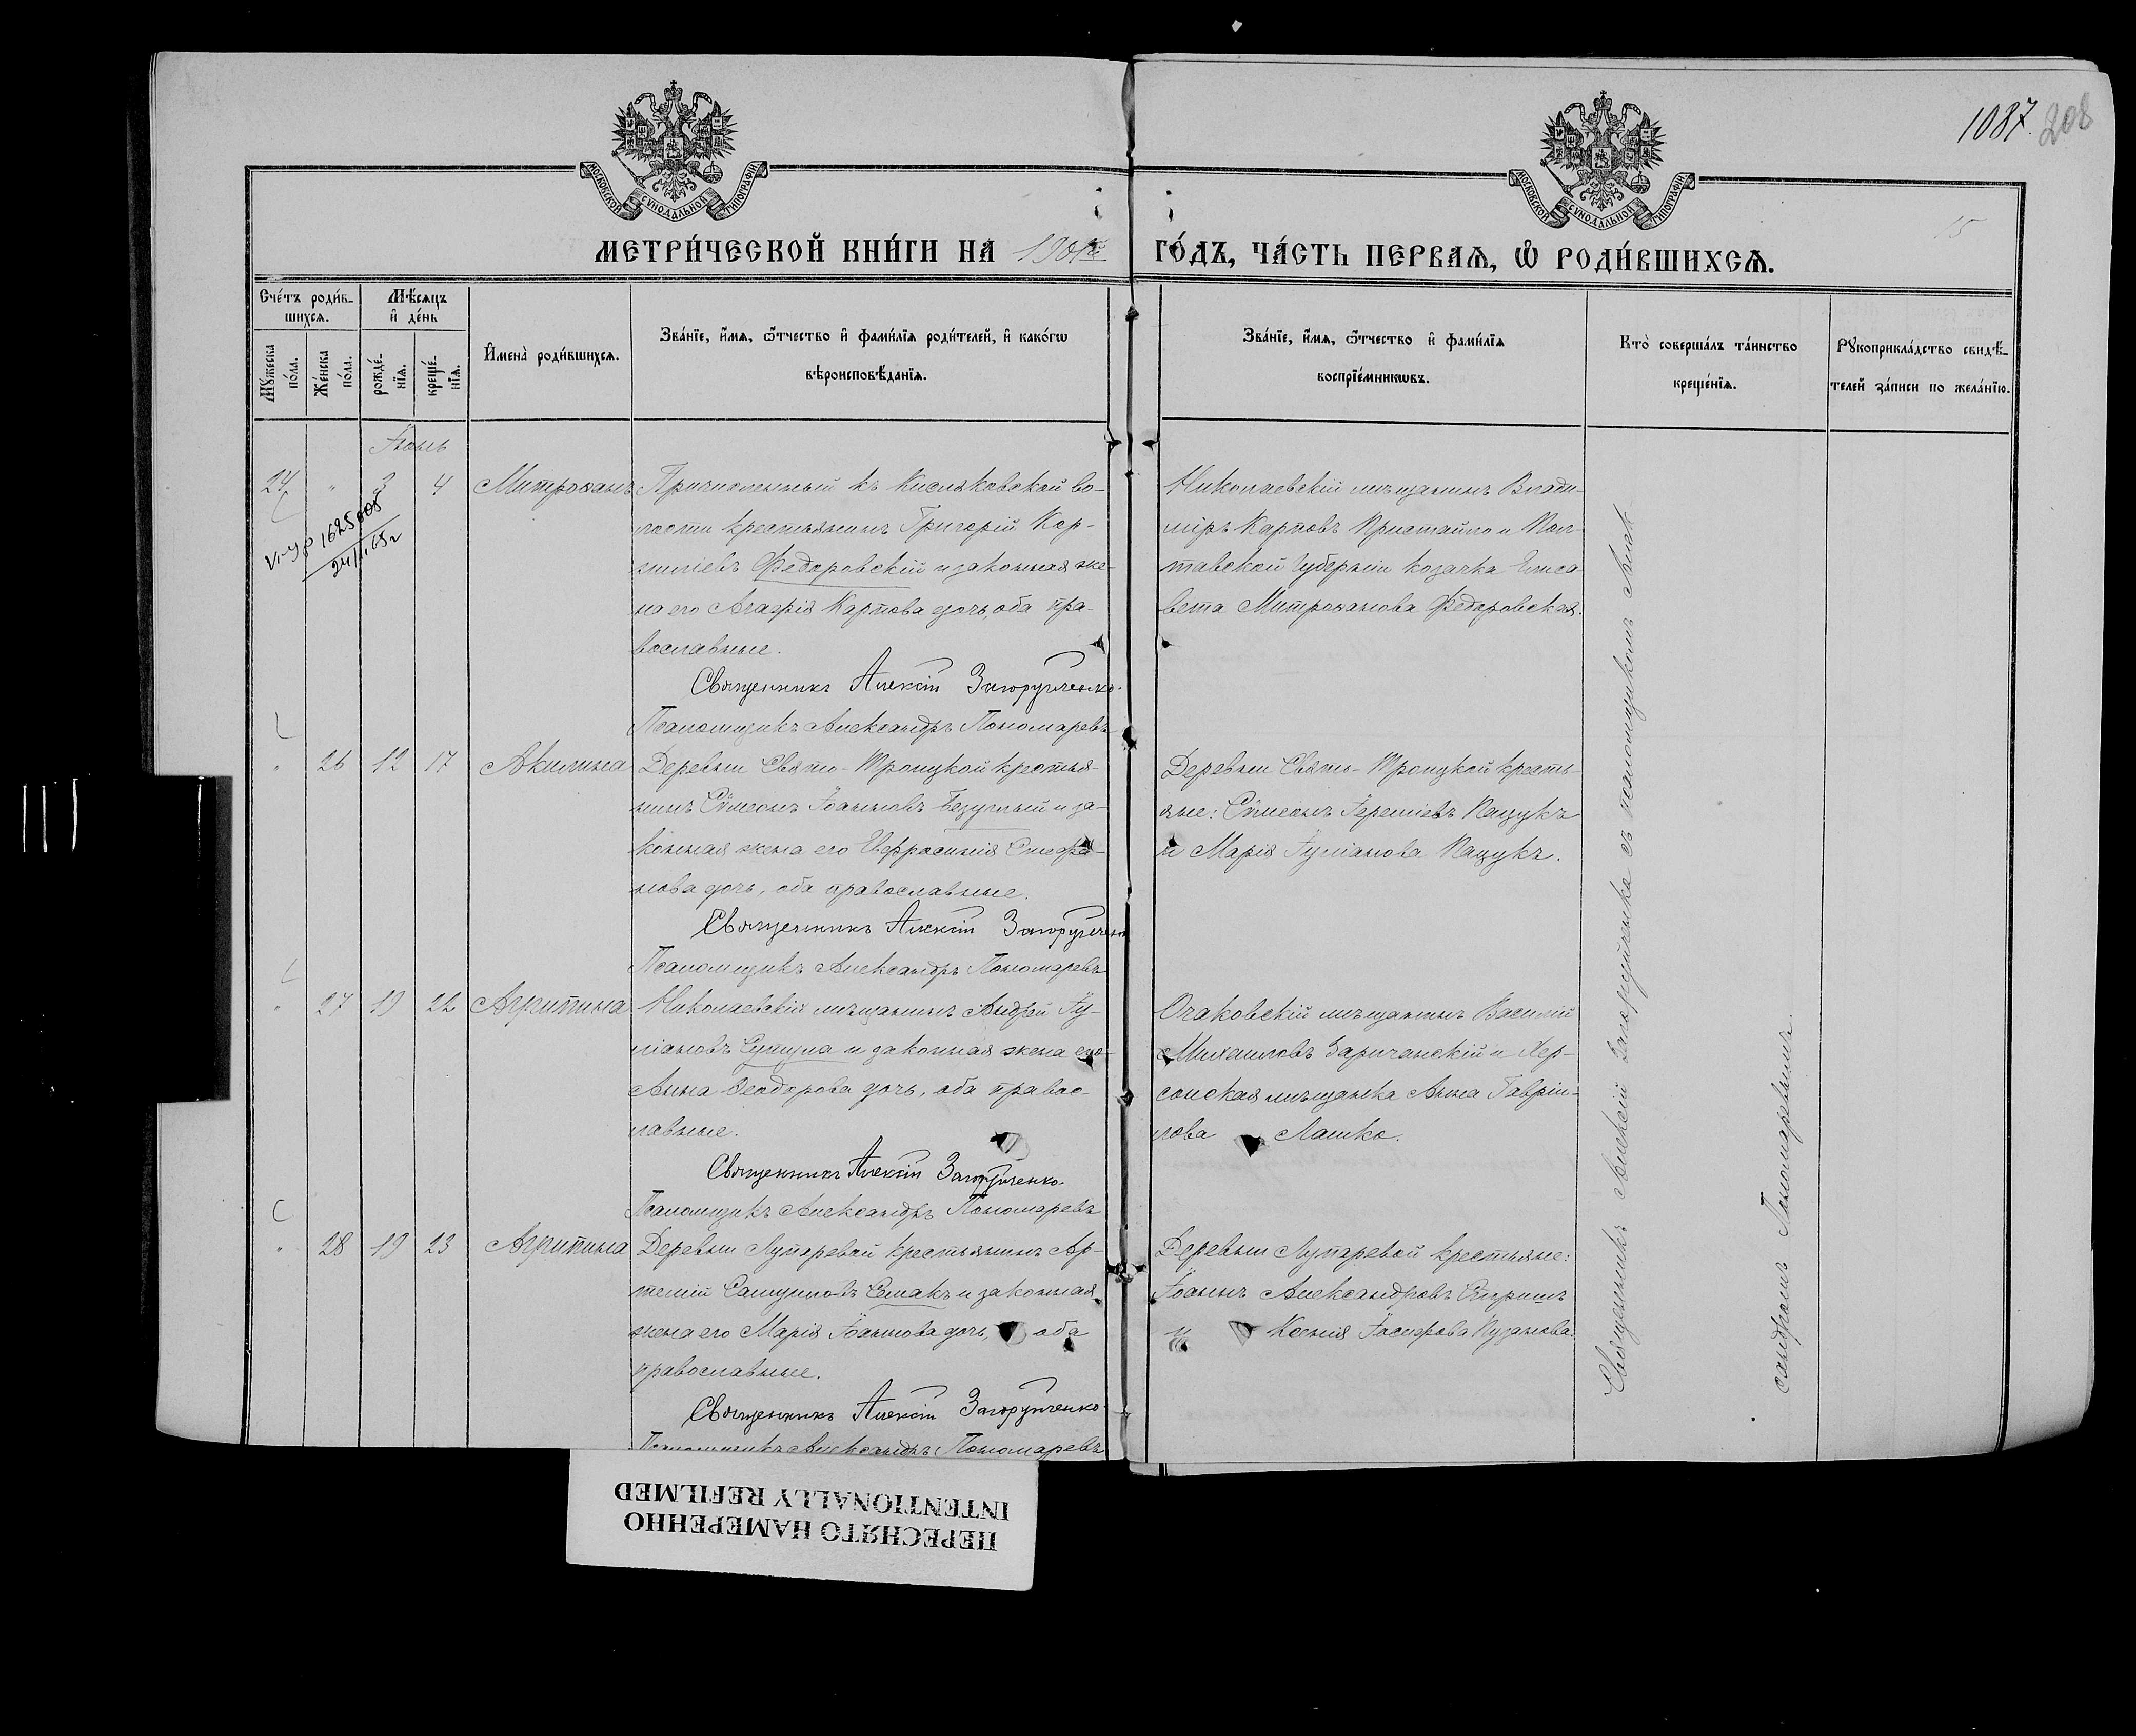 1087. 208
15
МОСКОВСКОЙ СѴНОДАЛЬНОЙ ТИПОГРАФІИ
МОСКОВСКОЙ СѴНОДАЛЬНОЙ ТИПОГРАФІИ
МЕТРИ́ЧЕСКОЙ КНИ́ГИ НА 1901й ГО́ДЪ, ЧА́СТЬ ПЕРВАѦ, Ѡ҆ РОДИ́ВШИХСѦ.
Сче́тъ роди́в-
шихсѧ.
Мꙋ́жеска по́ла.
Же́нска по́ла.
Мѣ́сѧцъ
и҆ де́нь
рожде́-нїѧ.
креще́-нїѧ.
И҆мена̀ роди́вшихсѧ.
Зва́нїе, и҆́мѧ, ѻ҆́тчество и҆ фами́лїѧ роди́телей, и҆ како́гѡ
вѣроисповѣ́данїѧ.
Зва́нїе, и҆́мѧ, ѻ҆́тчество и҆ фами́лїѧ
воспрїе́мникѡвъ.
Кто̀ соверша́лъ та́инство
креще́нїѧ.
Рꙋкоприкла́дство свидѣ́-
телей за́писи по жела́нїю.
Іюнь
24 " 3 4 Митрофанъ
Причисленный къ Кисляковской во-
лости крестьянинъ Григорій Кор-
нилiевъ Федоровскій и законная же-
на его Агафія Карпова дочь, оба пра-
вославные.
Священникъ Алексій Загорульченко.
Псаломщикъ Александръ Пономаревъ
Николаевскій мѣщанинъ Влади-
міръ Карповъ Пристайло и Пол-
тавской губерніи козачка Елиса-
вета Митрофанова Федоровская.
1625008
" 26 12 17 Акилина
Деревни Свято-Троицкой крестья-
нинъ Сѵмеонъ Іоанновъ Безуглый и за-
конная жена его Евфросинія Стефа-
нова дочь, оба православные.
Священникъ Алексій
Псаломщикъ Александръ Пономаревъ
Деревни Свято-Троицкой кресть-
яне: Сѵмеонъ Іереміевъ Пацукъ
и Марія Іуліанова Пацукъ.
" 27 19 22 Агрипина
Николаевскій мѣщанинъ Андрей Іу-
ліановъ и законная жена его
Анна Ѳеодорова дочь, оба правос-
лавные.
Священникъ Алексій Загорульченко.
Псаломщикъ Александръ Пономаревъ
Очаковскій мѣщанинъ Василій
Михаиловъ Заричанскій и Хер-
сонская мѣщанка Анна Гавріи-
лова Лашко.
" 28 19 23 Агрипина
Деревни Лупаревой крестьянинъ Ар-
темій Самуиловъ Смакъ и законная
жена его Марія Іоаннова дочь, оба
православные.
Священникъ Алексій Загорульченко.
Псаломщикъ Александръ Пономаревъ
Деревни Лупаревой крестьяне:
Іоаннъ Александровъ
и Ксенія Іосифова Пузанова.
Священникъ Алексій Загорульченко съ псаломщикомъ Алек-
сандромъ Пономаревымъ.
ПЕРЕСНЯТО НАМЕРЕННО
INTENTIONALLY REFILMED